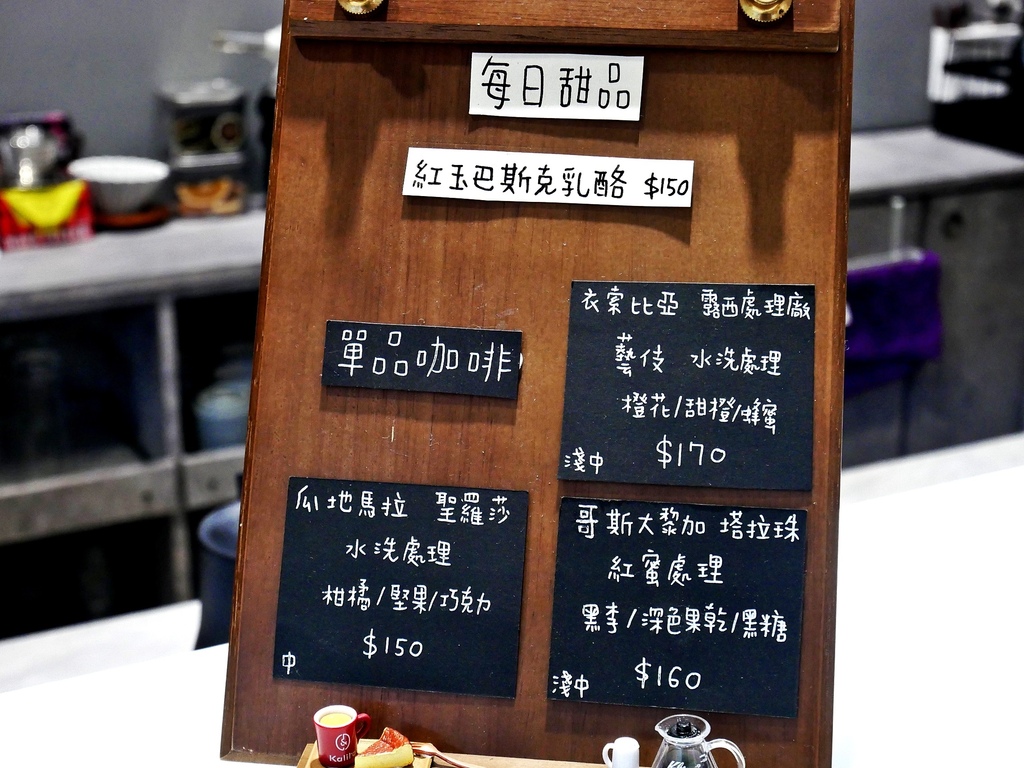 每日甜品
紅玉巴斯克乳酪 $150
單品咖啡
衣索比亞 露西處理廠
藝伎 水洗處理
橙花/甜橙/蜂蜜
$170
淺中
瓜地馬拉 聖羅莎
水洗處理
柑橘/堅果/巧克力
$150
中
哥斯大黎加 塔拉珠
紅蜜處理
黑李/深色果乾/黑糖
$160
淺中